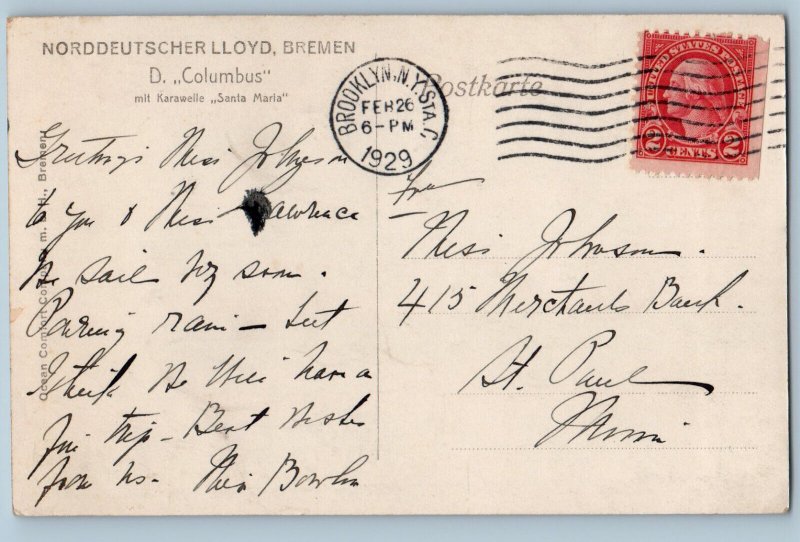 NORDDEUTSCHER LLOYD, BREMEN
D. „Columbus"
mit Karawelle „Santa Maria"
Postkarte
BROOKLYN, N.Y. STA. C,
FEB 26
6-PM
1929
UNITED STATES POSTAGE
2 CENTS 2
Greetings Miss Johnson
to you & Miss Lawrence
We sail very soon.
Pouring rain — but
I think we will have a
fine trip — Best wishes
from us. Miss
For
Miss Johnson.
415 Merchants Bank.
St. Paul
Minn
Ocean Comfort Co m. H., Bremen